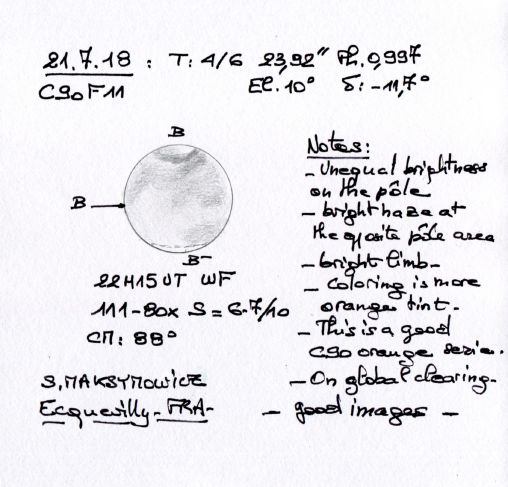 21.7.18 : T: 4/6 23,92" Ph. 0,997
C90 F11 El. 10° δ: -11,7°
B
B
B-
22H15 UT WF
111-80x S = 6-7/10
CM: 88°
S. MAKSYMOWICZ
Ecquevilly - FRA -
Notes:
- Unequal brightness
on the pôle
- bright haze at
the oposite pôle area
- bright limb -
- Coloring is more
orange tint.
- This is a good
C90 orange serie.
- On global clearing.
- good images -